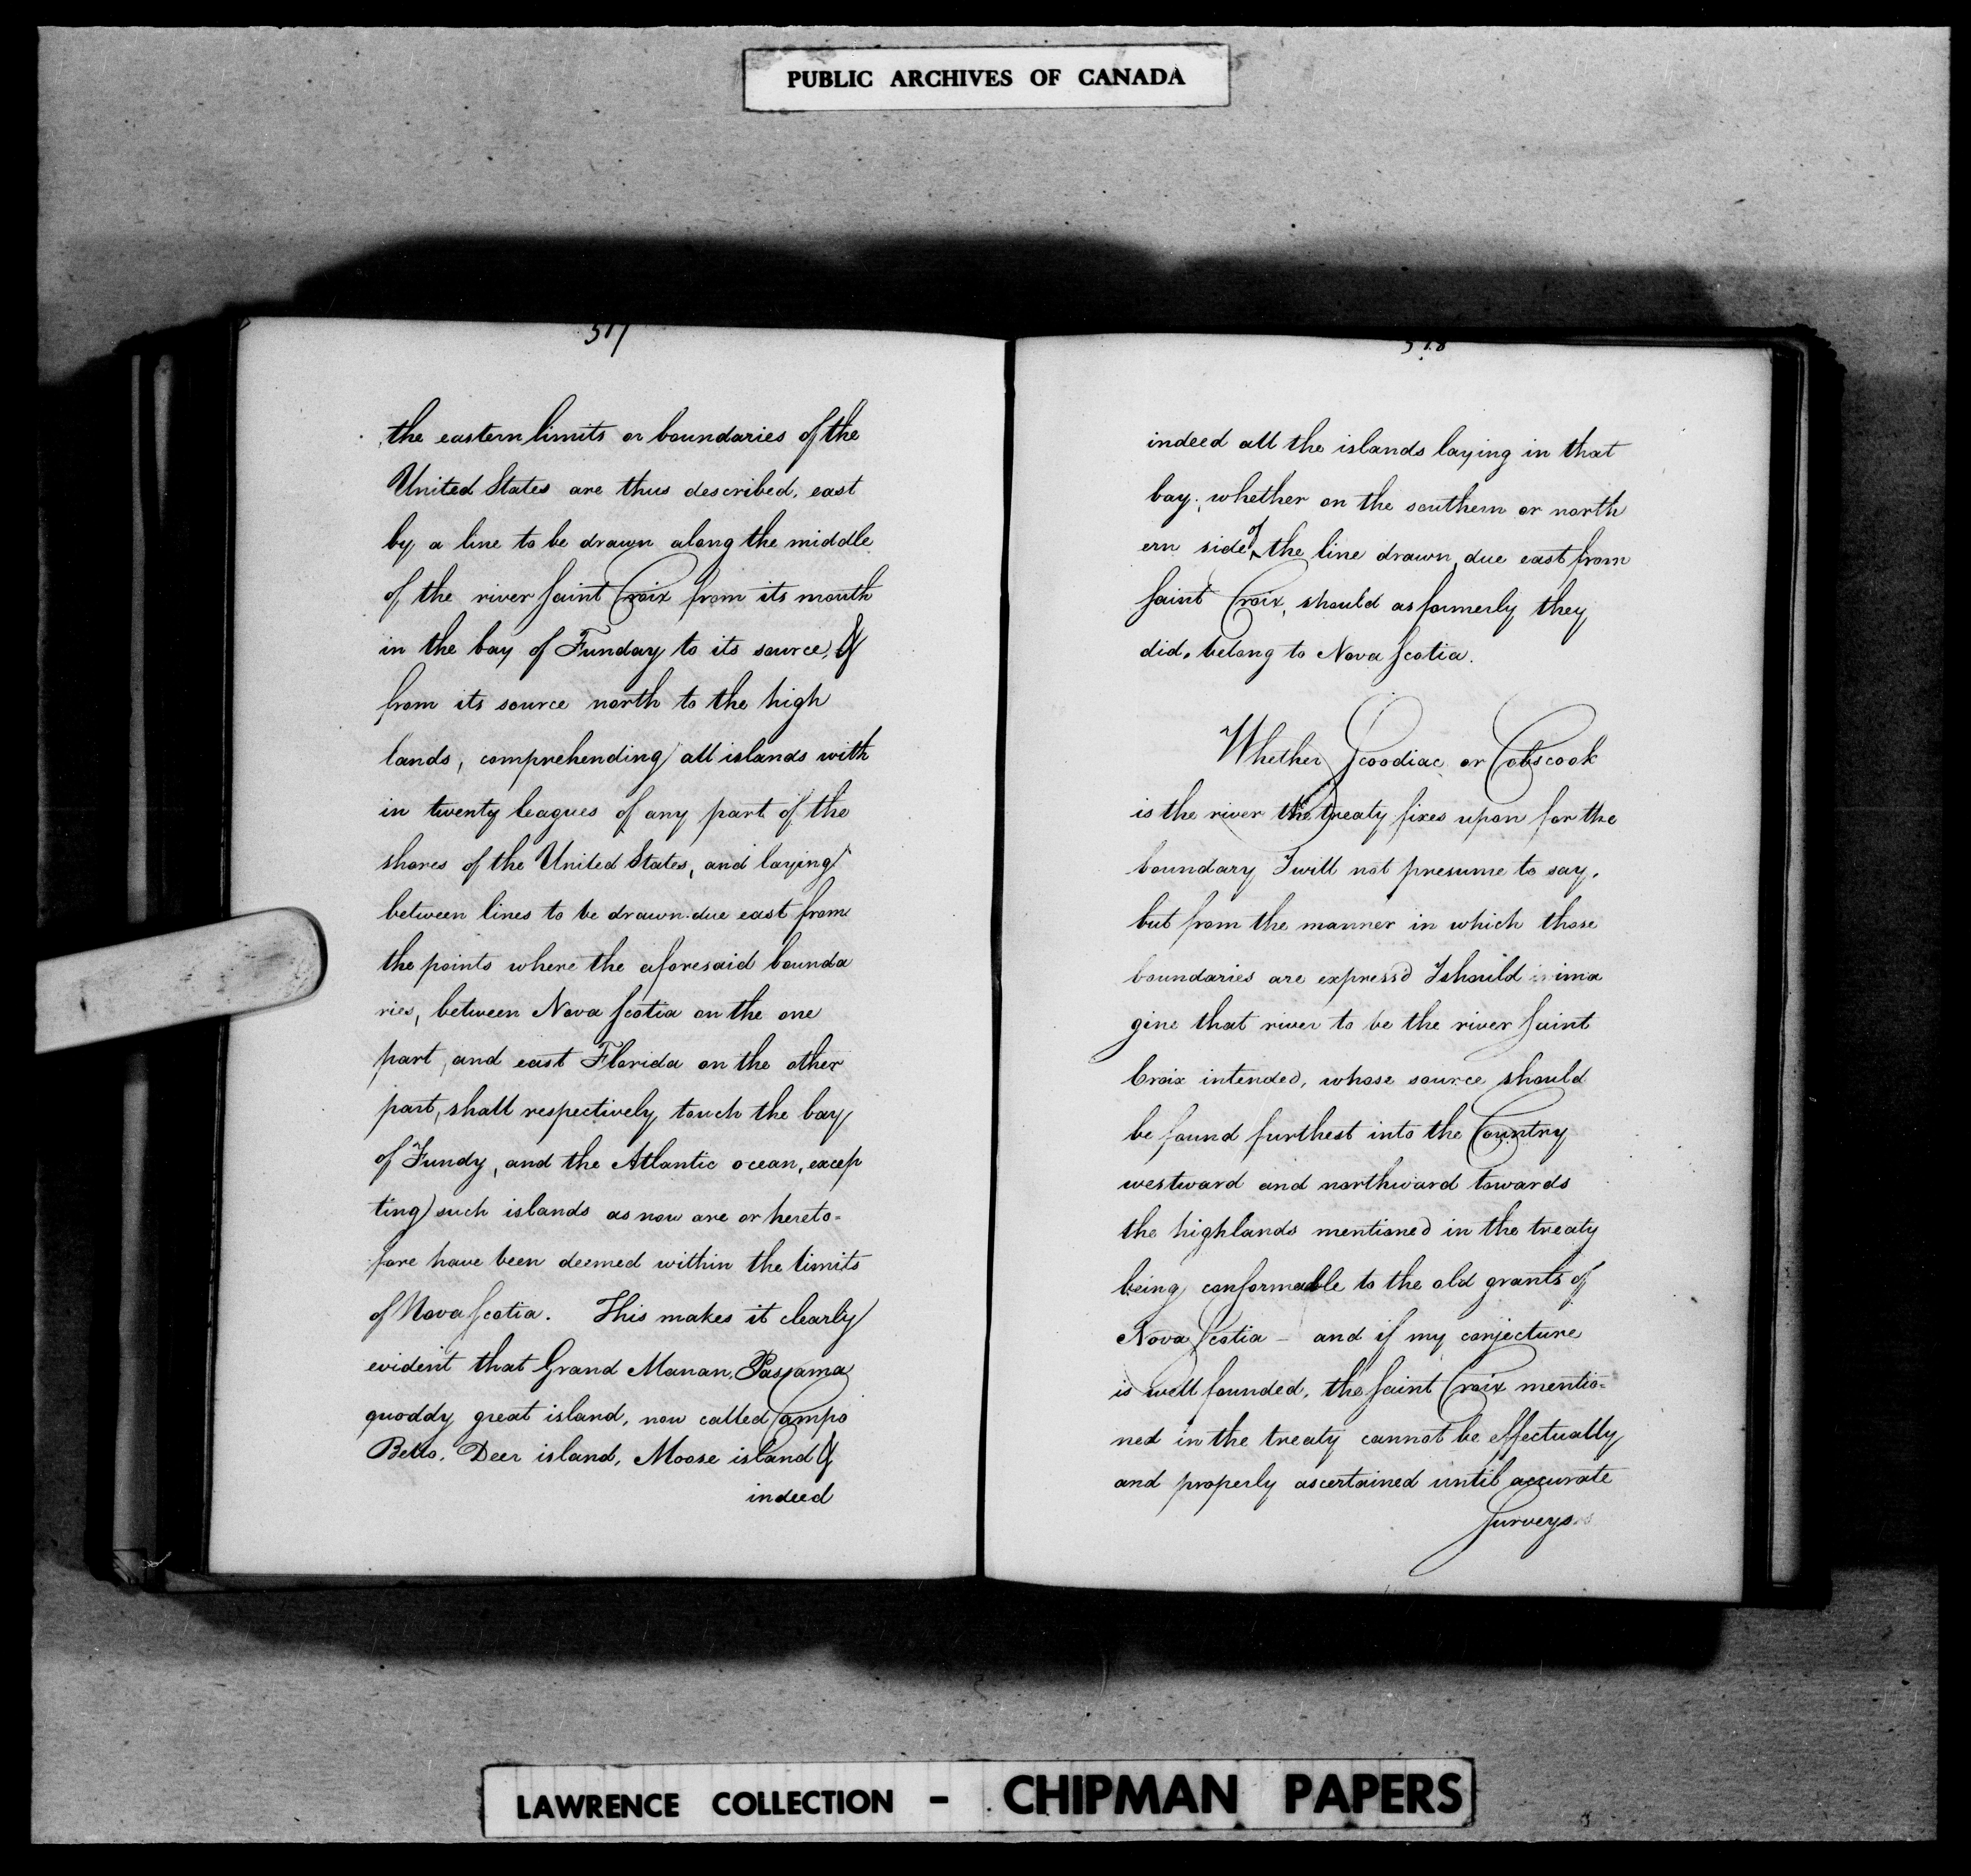 PUBLIC ARCHIVES OF CANADA
517
the eastern limits or boundaries of the
United States are thus described, east
by a line to be drawn along the middle
of the river Saint Croix from its mouth
in the bay of Funday to its source, &
from its source north to the high
lands, comprehending all islands with
in twenty leagues of any part of the
shores of the United States, and laying
between lines to be drawn due east from
the points where the aforesaid bounda
ries, between Nova Scotia on the one
part, and east Florida on the other
part, shall respectively touch the bay
of Fundy, and the Atlantic ocean, excep
ting such islands as now are or hereto-
fore have been deemed within the limits
of Nova Scotia. This makes it clearly
evident that Grand Manan, Passama
quoddy great island, now called Campo
Bello, Deer island, Moose island &
indeed
518
indeed all the islands laying in that
bay, whether on the southern or north
ern side of the line drawn due east from
Saint Croix, should as formerly they
did, belong to Nova Scotia.
Whether Scoodiac or Cobscook
is the river the treaty fixes upon for the
boundary I will not presume to say,
but from the manner in which those
boundaries are express'd I should ima
gine that river to be the river Saint
Croix intended, whose source should
be found furthest into the Country
westward and northward towards
the highlands mentioned in the treaty
being conformable to the old grants of
Nova Scotia - and if my conjecture
is well founded, the Saint Croix mentio-
ned in the treaty cannot be effectually
and properly ascertained until accurate
Surveys
LAWRENCE COLLECTION - CHIPMAN PAPERS